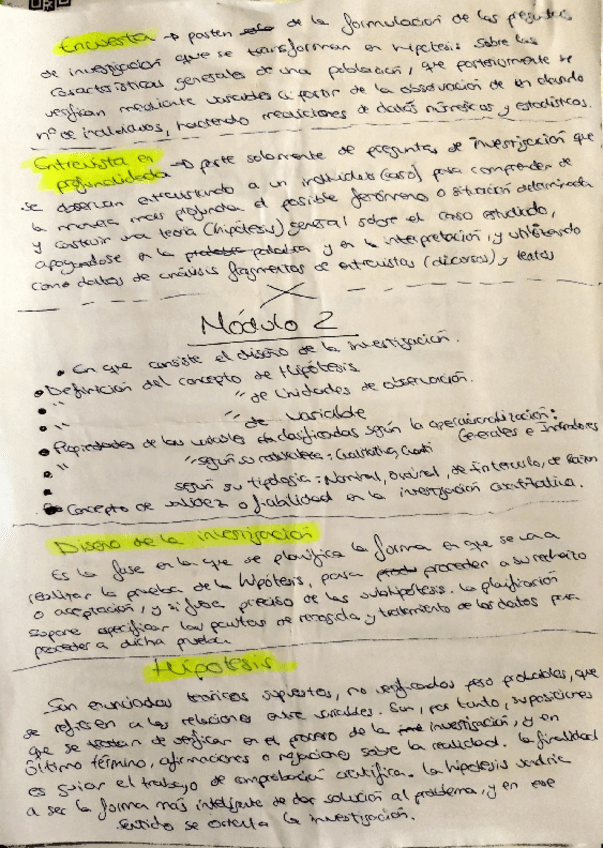 Encuesta → parten de la formulación de las preguntas
de investigación que se transforman en hipótesis sobre las
características generales de una población, que posteriormente se
verifican mediante variables a partir de la observación de un elevado
nº de individuos, haciendo mediciones de datos númericos y estadísticos.
Entrevista en profundidad → parte solamente de preguntas de investigación que
se observan entrevistando a un individuo (caso) para comprender de
la manera más profunda el posible fenómeno o situación determinada
y construir una teoría (hipótesis) general sobre el caso estudiado,
apoyandose en la palabra y en la interpretación, y utilizando
como datos de análisis fragmentos de entrevistas (discursos) y textos
Módulo 2
• En que consiste el diseño de la investigación.
• Definición del concepto de Hipótesis
• " " de Unidades de observación.
• " " de variable
• Propiedades de las variables clasificadas según la operacionalización: Generales e Indicadores
• " " según su naturaleza: Cualitativa, Cuanti
• según su tipología: Nominal, Ordinal, de intervalo, de Razón
• Concepto de validez o fiabilidad en la investigación cuantitativa.
Diseño de la investigación
Es la fase en la que se planifica la forma en que se va a
realizar la prueba de la hipótesis, para proceder a su rechazo
o aceptación, y si fuese preciso de las subhipótesis. La planificación
supone especificar las pautas de recogida y tratamiento de los datos para
proceder a dicha prueba.
Hipótesis
Son enunciados teóricos supuestos, no verificados pero probables, que
se refieren a las relaciones entre variables. Son, por tanto, suposiciones
que se tratan de verificar en el proceso de la investigación, y en
último término, afirmaciones o negaciones sobre la realidad. La finalidad
es guiar el trabajo de comprobación científica. La hipótesis vendría
a ser la forma más inteligente de dar solución al problema, y en ese
sentido se orienta la investigación.